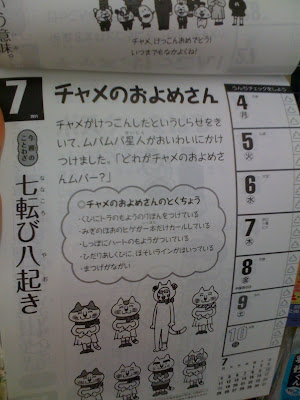 チャメ、けっこんおめでとう!
いつまでもなかよくね!
7
今週の
ことわざ
七転び八起き
ななころ
や
お
チャメのおよめさん
チャメがけっこんしたというしらせをき
いて、ムバムバ星人がおいわいにかけ
つけました。「どれがチャメのおよめさ
んムバー?」
◎チャメのおよめさんのとくちょう
・くびにトラのもようのリボンをつけている
・みぎのほおのヒゲが一本だけカールしている
・しっぽにハートのもようがついている
・ひだりあしくびに、ほそいラインがはいっている
・まつげがながい
うんちチェックをしよう
4
月
5
火
6
水
7
木
8
金
9
土
10
日
7